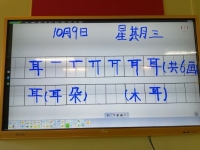 10月9日 星期三
耳 一 丆 丌 耳 耳 耳(共6画)
耳(耳朵) (木耳)